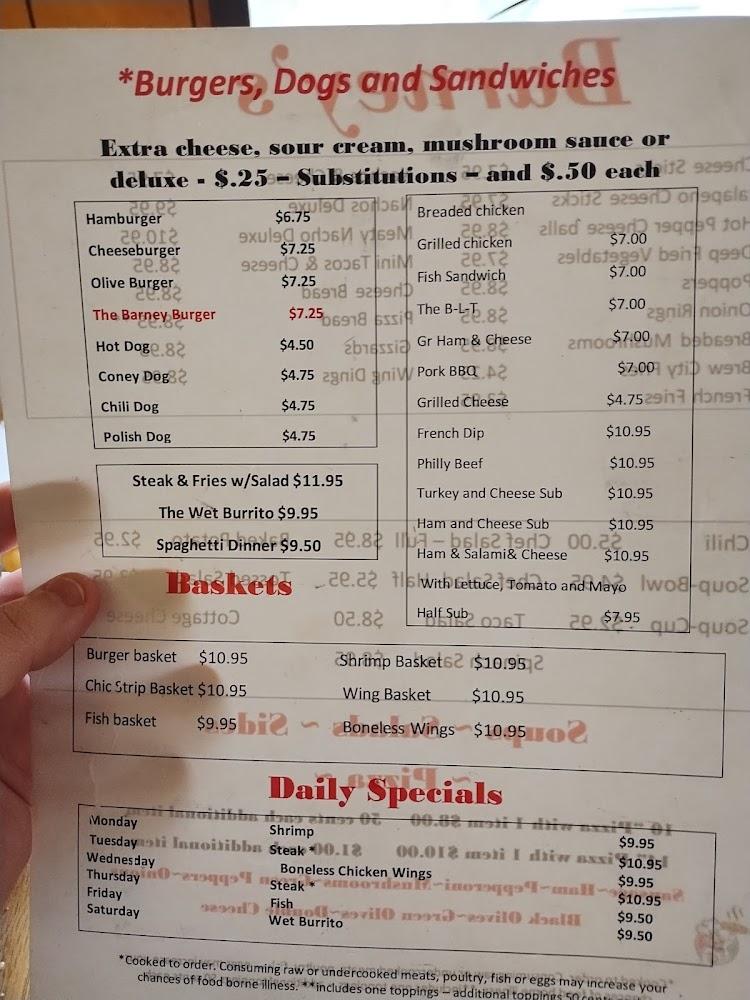 *Burgers, Dogs and Sandwiches
Extra cheese, sour cream, mushroom sauce or
deluxe - $.25 – Substitutions – and $.50 each
Hamburger $6.75
Cheeseburger $7.25
Olive Burger $7.25
The Barney Burger $7.25
Hot Dog $4.50
Coney Dog $4.75
Chili Dog $4.75
Polish Dog $4.75
Steak & Fries w/Salad $11.95
The Wet Burrito $9.95
Spaghetti Dinner $9.50
Breaded chicken
Grilled chicken $7.00
Fish Sandwich $7.00
The B-L-T $7.00
Gr Ham & Cheese $7.00
Pork BBQ $7.00
Grilled Cheese $4.75
French Dip $10.95
Philly Beef $10.95
Turkey and Cheese Sub $10.95
Ham and Cheese Sub $10.95
Ham & Salami& Cheese $10.95
With Lettuce, Tomato and Mayo
Half Sub $7.95
Baskets
Burger basket $10.95 Shrimp Basket $10.95
Chic Strip Basket $10.95 Wing Basket $10.95
Fish basket $9.95 Boneless Wings $10.95
Daily Specials
Monday Shrimp $9.95
Tuesday Steak * $10.95
Wednesday Boneless Chicken Wings $9.95
Thursday Steak * $10.95
Friday Fish $9.50
Saturday Wet Burrito $9.50
*Cooked to order. Consuming raw or undercooked meats, poultry, fish or eggs may increase your
chances of food borne illness. **includes one toppings – additional toppings 50